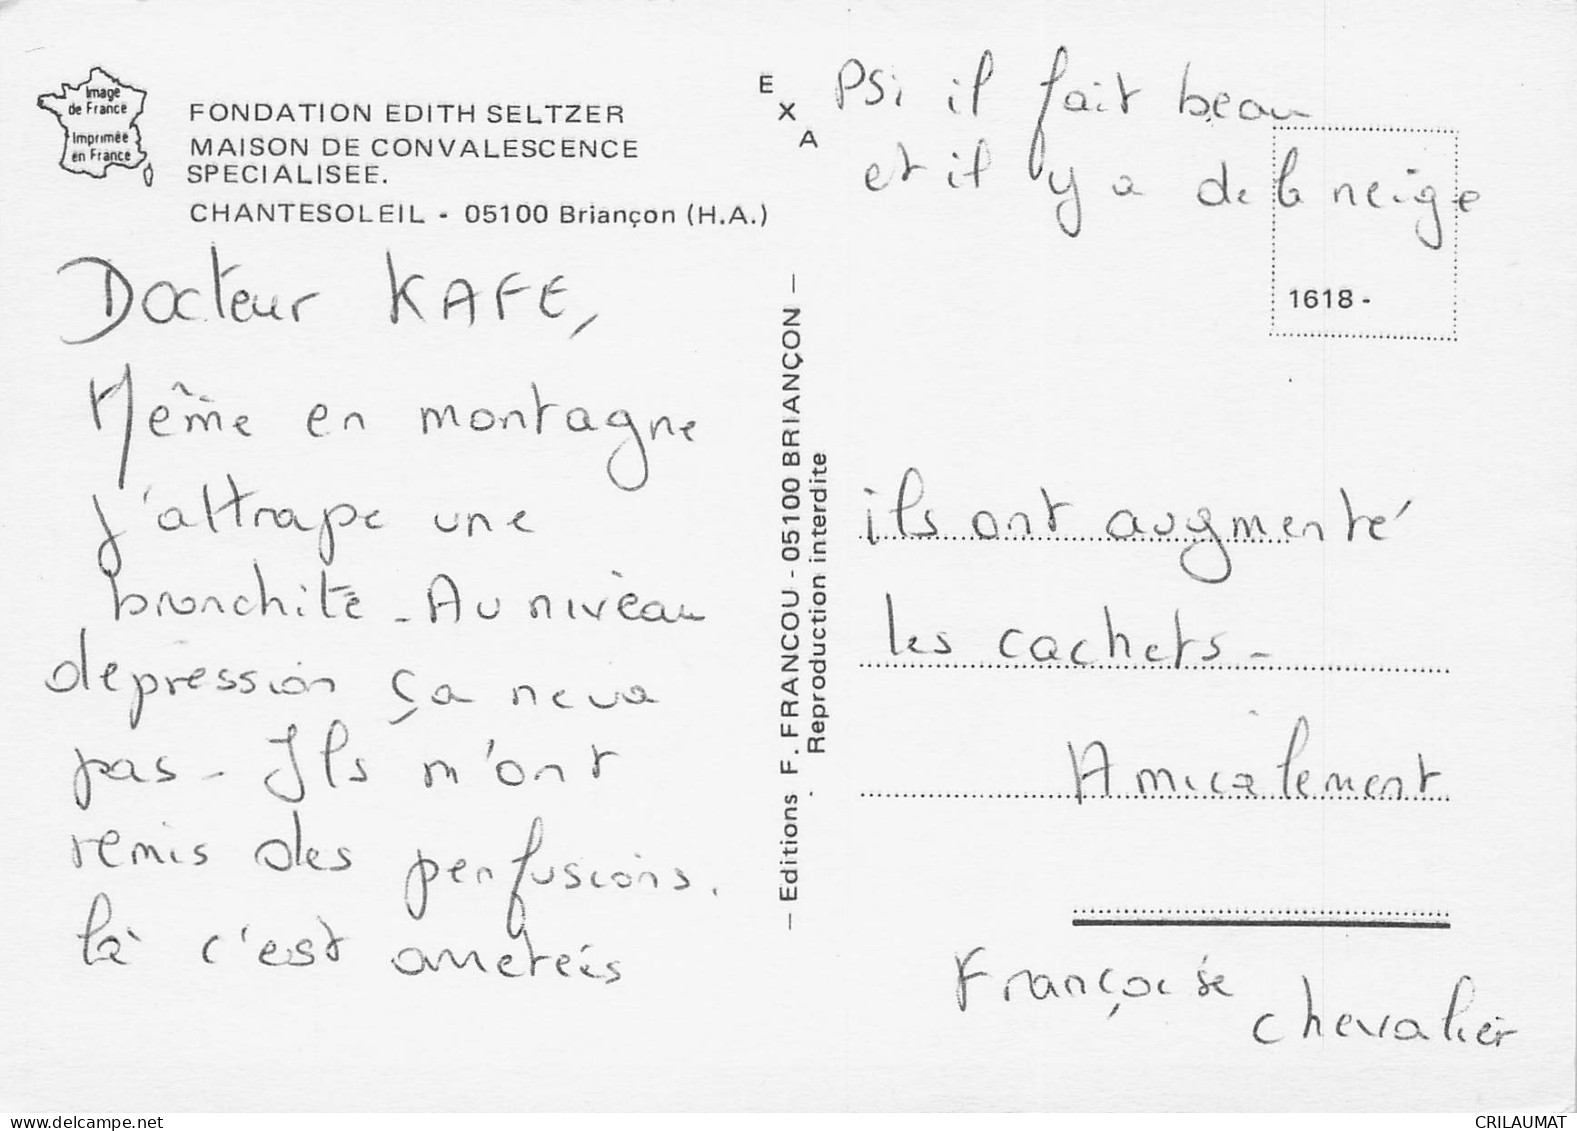 Image
de France
Imprimée
en France
FONDATION EDITH SELTZER
MAISON DE CONVALESCENCE
SPECIALISEE.
CHANTESOLEIL - 05100 Briançon (H.A.)
Docteur KAFE,
Même en montagne
j'attrape une
bronchite - Au niveau
depression ça ne va
pas - Ils m'ont
remis des perfusions.
là c'est arretés
E
X
A
— Editions F. FRANCOU - 05100 BRIANÇON —
Reproduction interdite
PS: il fait beau
et il y a de la neige
1618 -
ils ont augmenté
les cachets -
Amicalement
Françoise
chevalier
CRILAUMAT